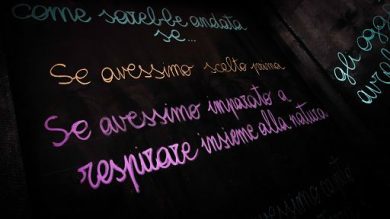 come sarebbe andata
se...
Se avessimo scelto prima
Se avessimo imparato a
respirare insieme alla natura
gli ogg